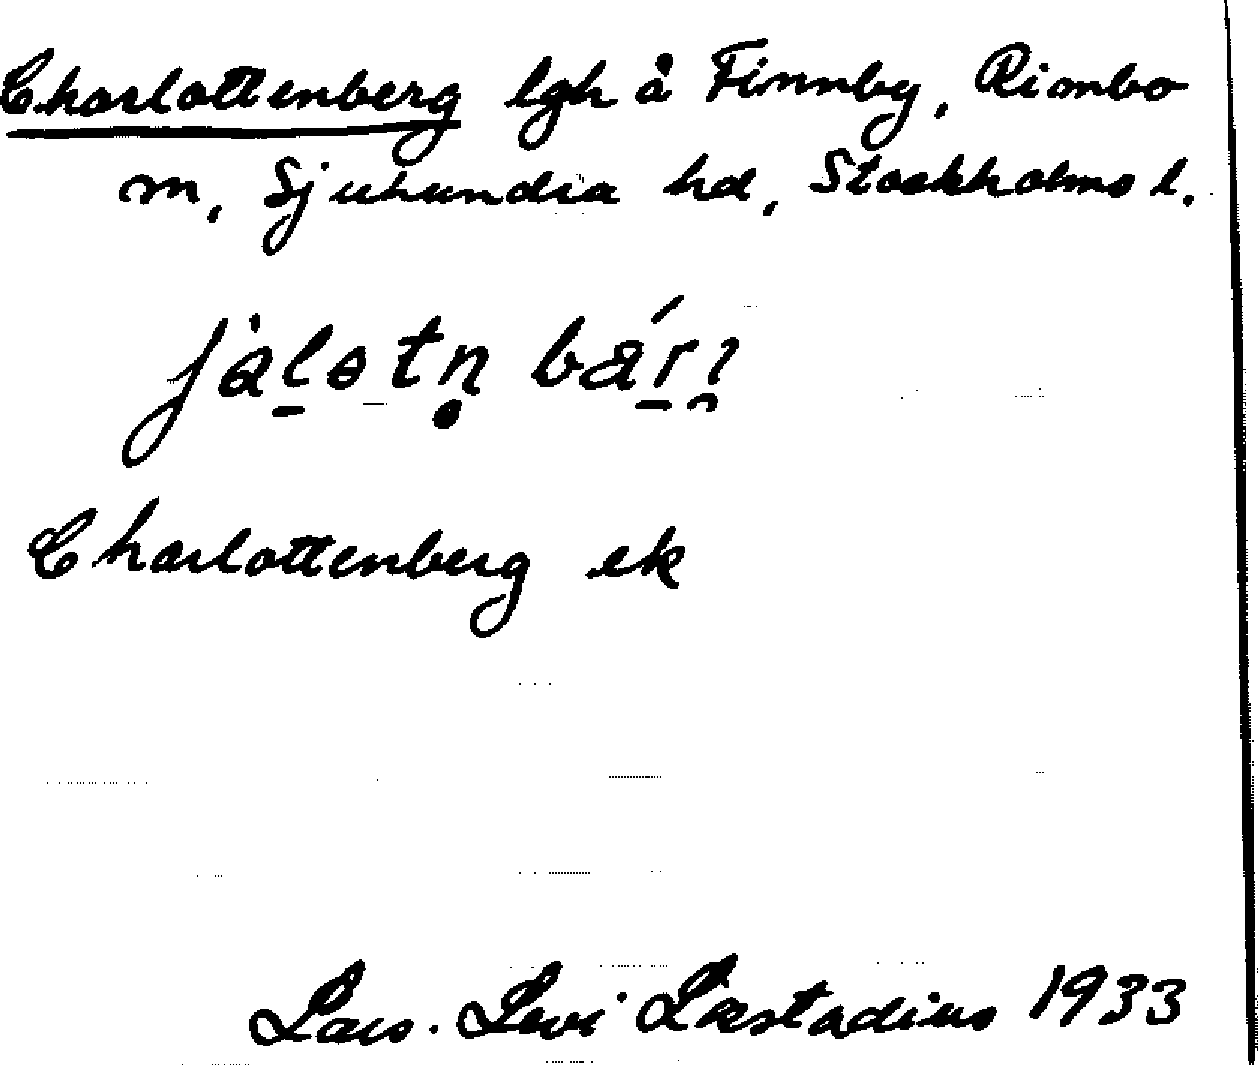 Charlottenberg lgh å Finnby, Rimbo
m, Sjuhundra hd, Stockholms l.
Charlottenberg ek
Lars-Levi Læstadius 1933